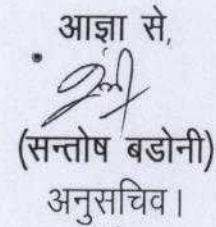 आज्ञा से,
(सन्तोष बडोनी)
अनुसचिव।